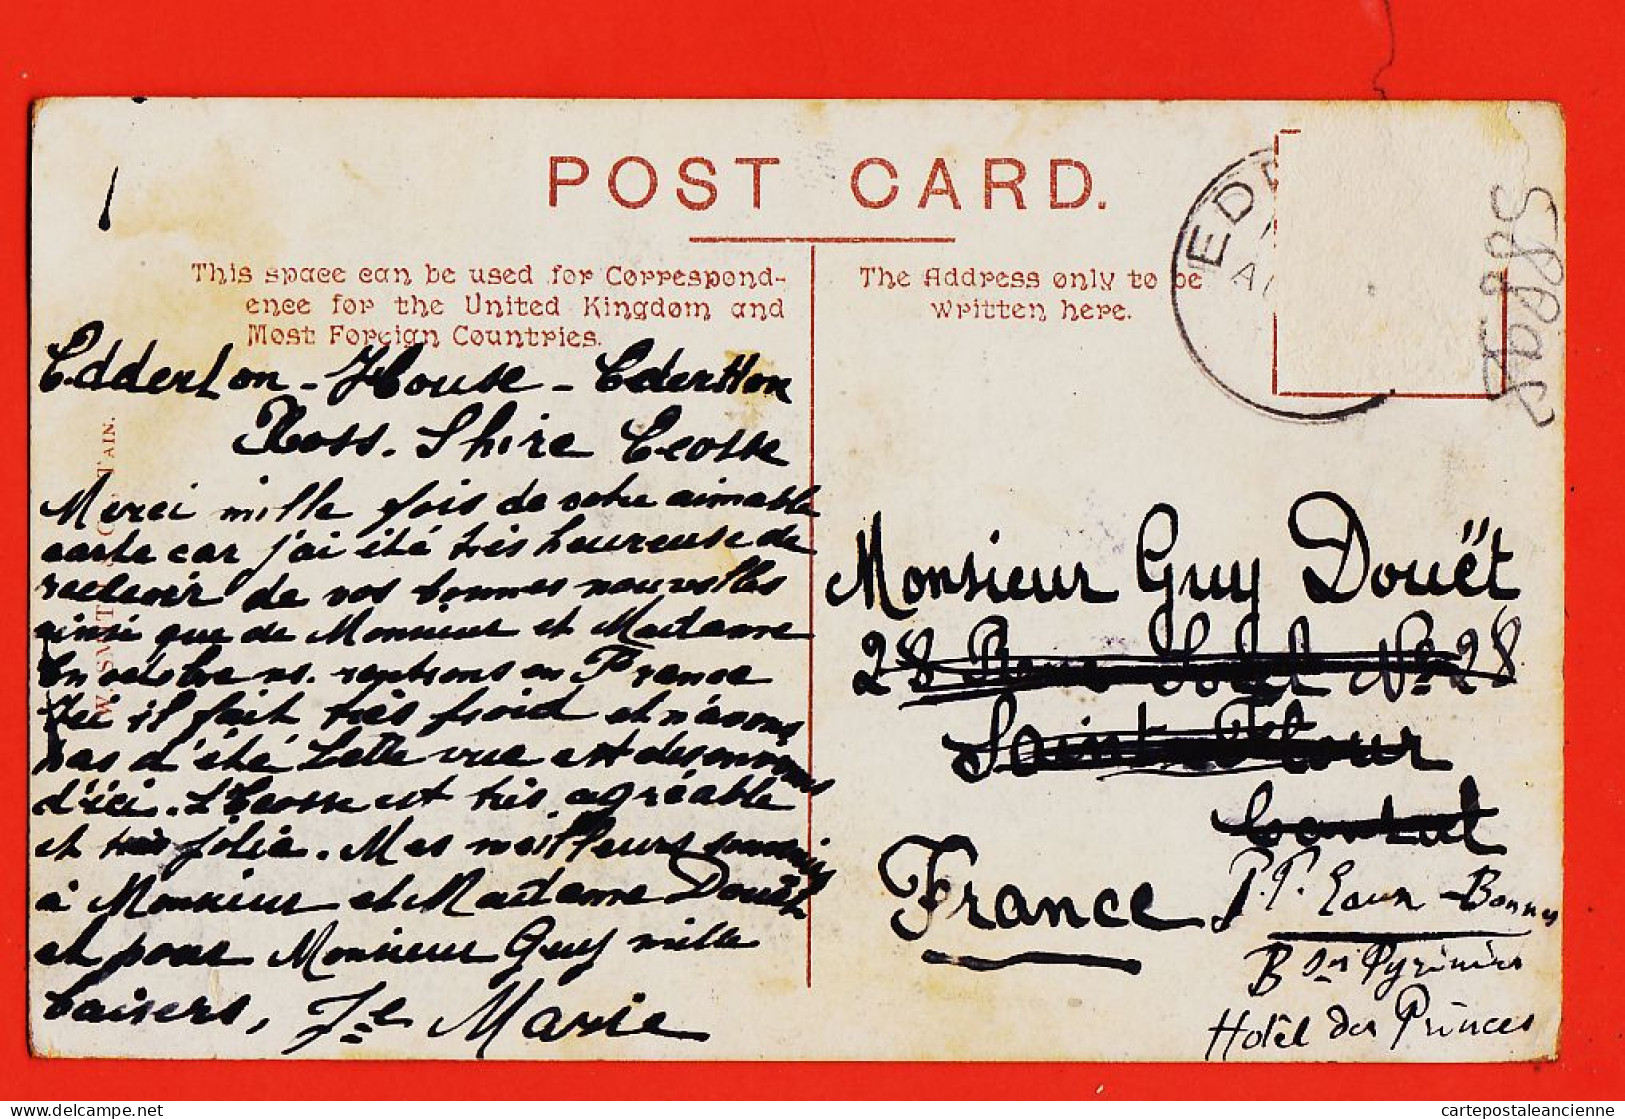 POST CARD.
This space can be used for Correspond-
ence for the United Kingdom and
Most Foreign Countries.
The Address only to be
written here.
EDD
AU
Edderton - House - Ederthon
Ross. Shire Ecosse
Merci mille fois de votre aimable
carte car j'ai été très heureuse de
recevoir de vos bonnes nouvelles
ainsi que de Monsieur et Madame
En octobre ns. rentrons en France
Ici il fait très froid et n'avons
pas d'été Cette vue est des environs
d'ici. L'Ecosse est très agréable
et très jolie. Mes meilleurs souvenirs
à Monsieur et Madame Douët
et pour Monsieur Guy mille
baisers, Marie
W. SMITH TAIN.
Monsieur Guy Douët
28 Rue Sorel No 28
Saint Flour
Cantal
France
P.P. Eaux-Bonnes
Bses Pyrénées
Hotêl des Princes
cartepostaleancienne